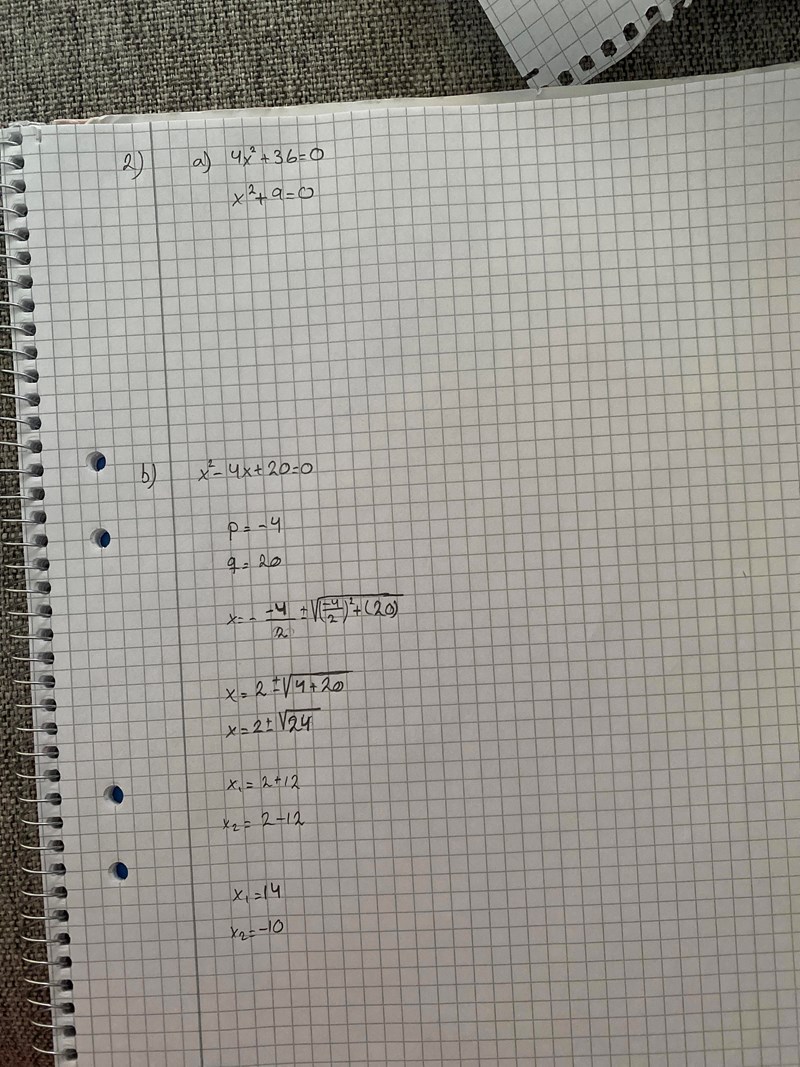 2) a) 4x²+36=0
x²+9=0
b) x²-4x+20=0
p=-4
q=20
x=- -4/2 ±√((-4/2)²+(20))
x=2±√(4+20)
x=2±√24
x₁=2+12
x₂=2-12
x₁=14
x₂=-10